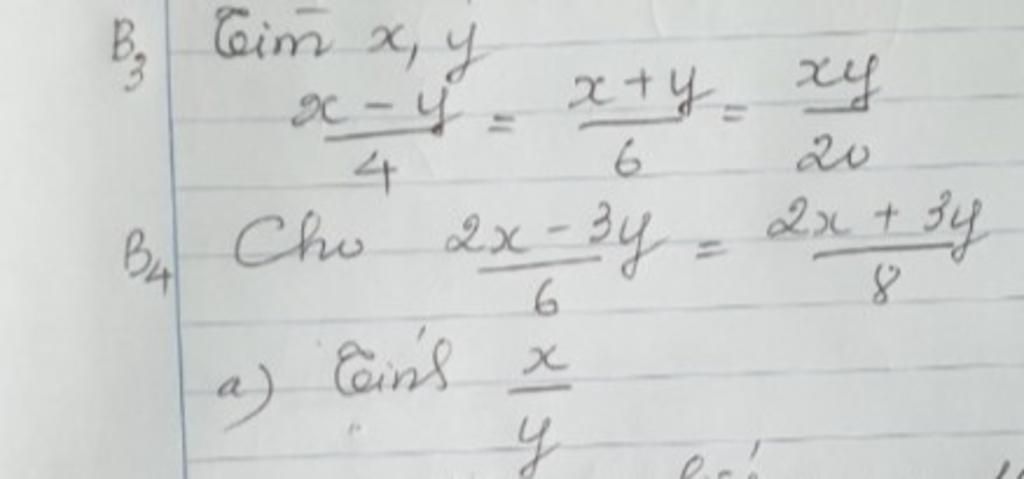 B3 Tìm x, y
x - y / 4 = x + y / 6 = xy / 20
B4 Cho 2x - 3y / 6 = 2x + 3y / 8
a) Tính x / y